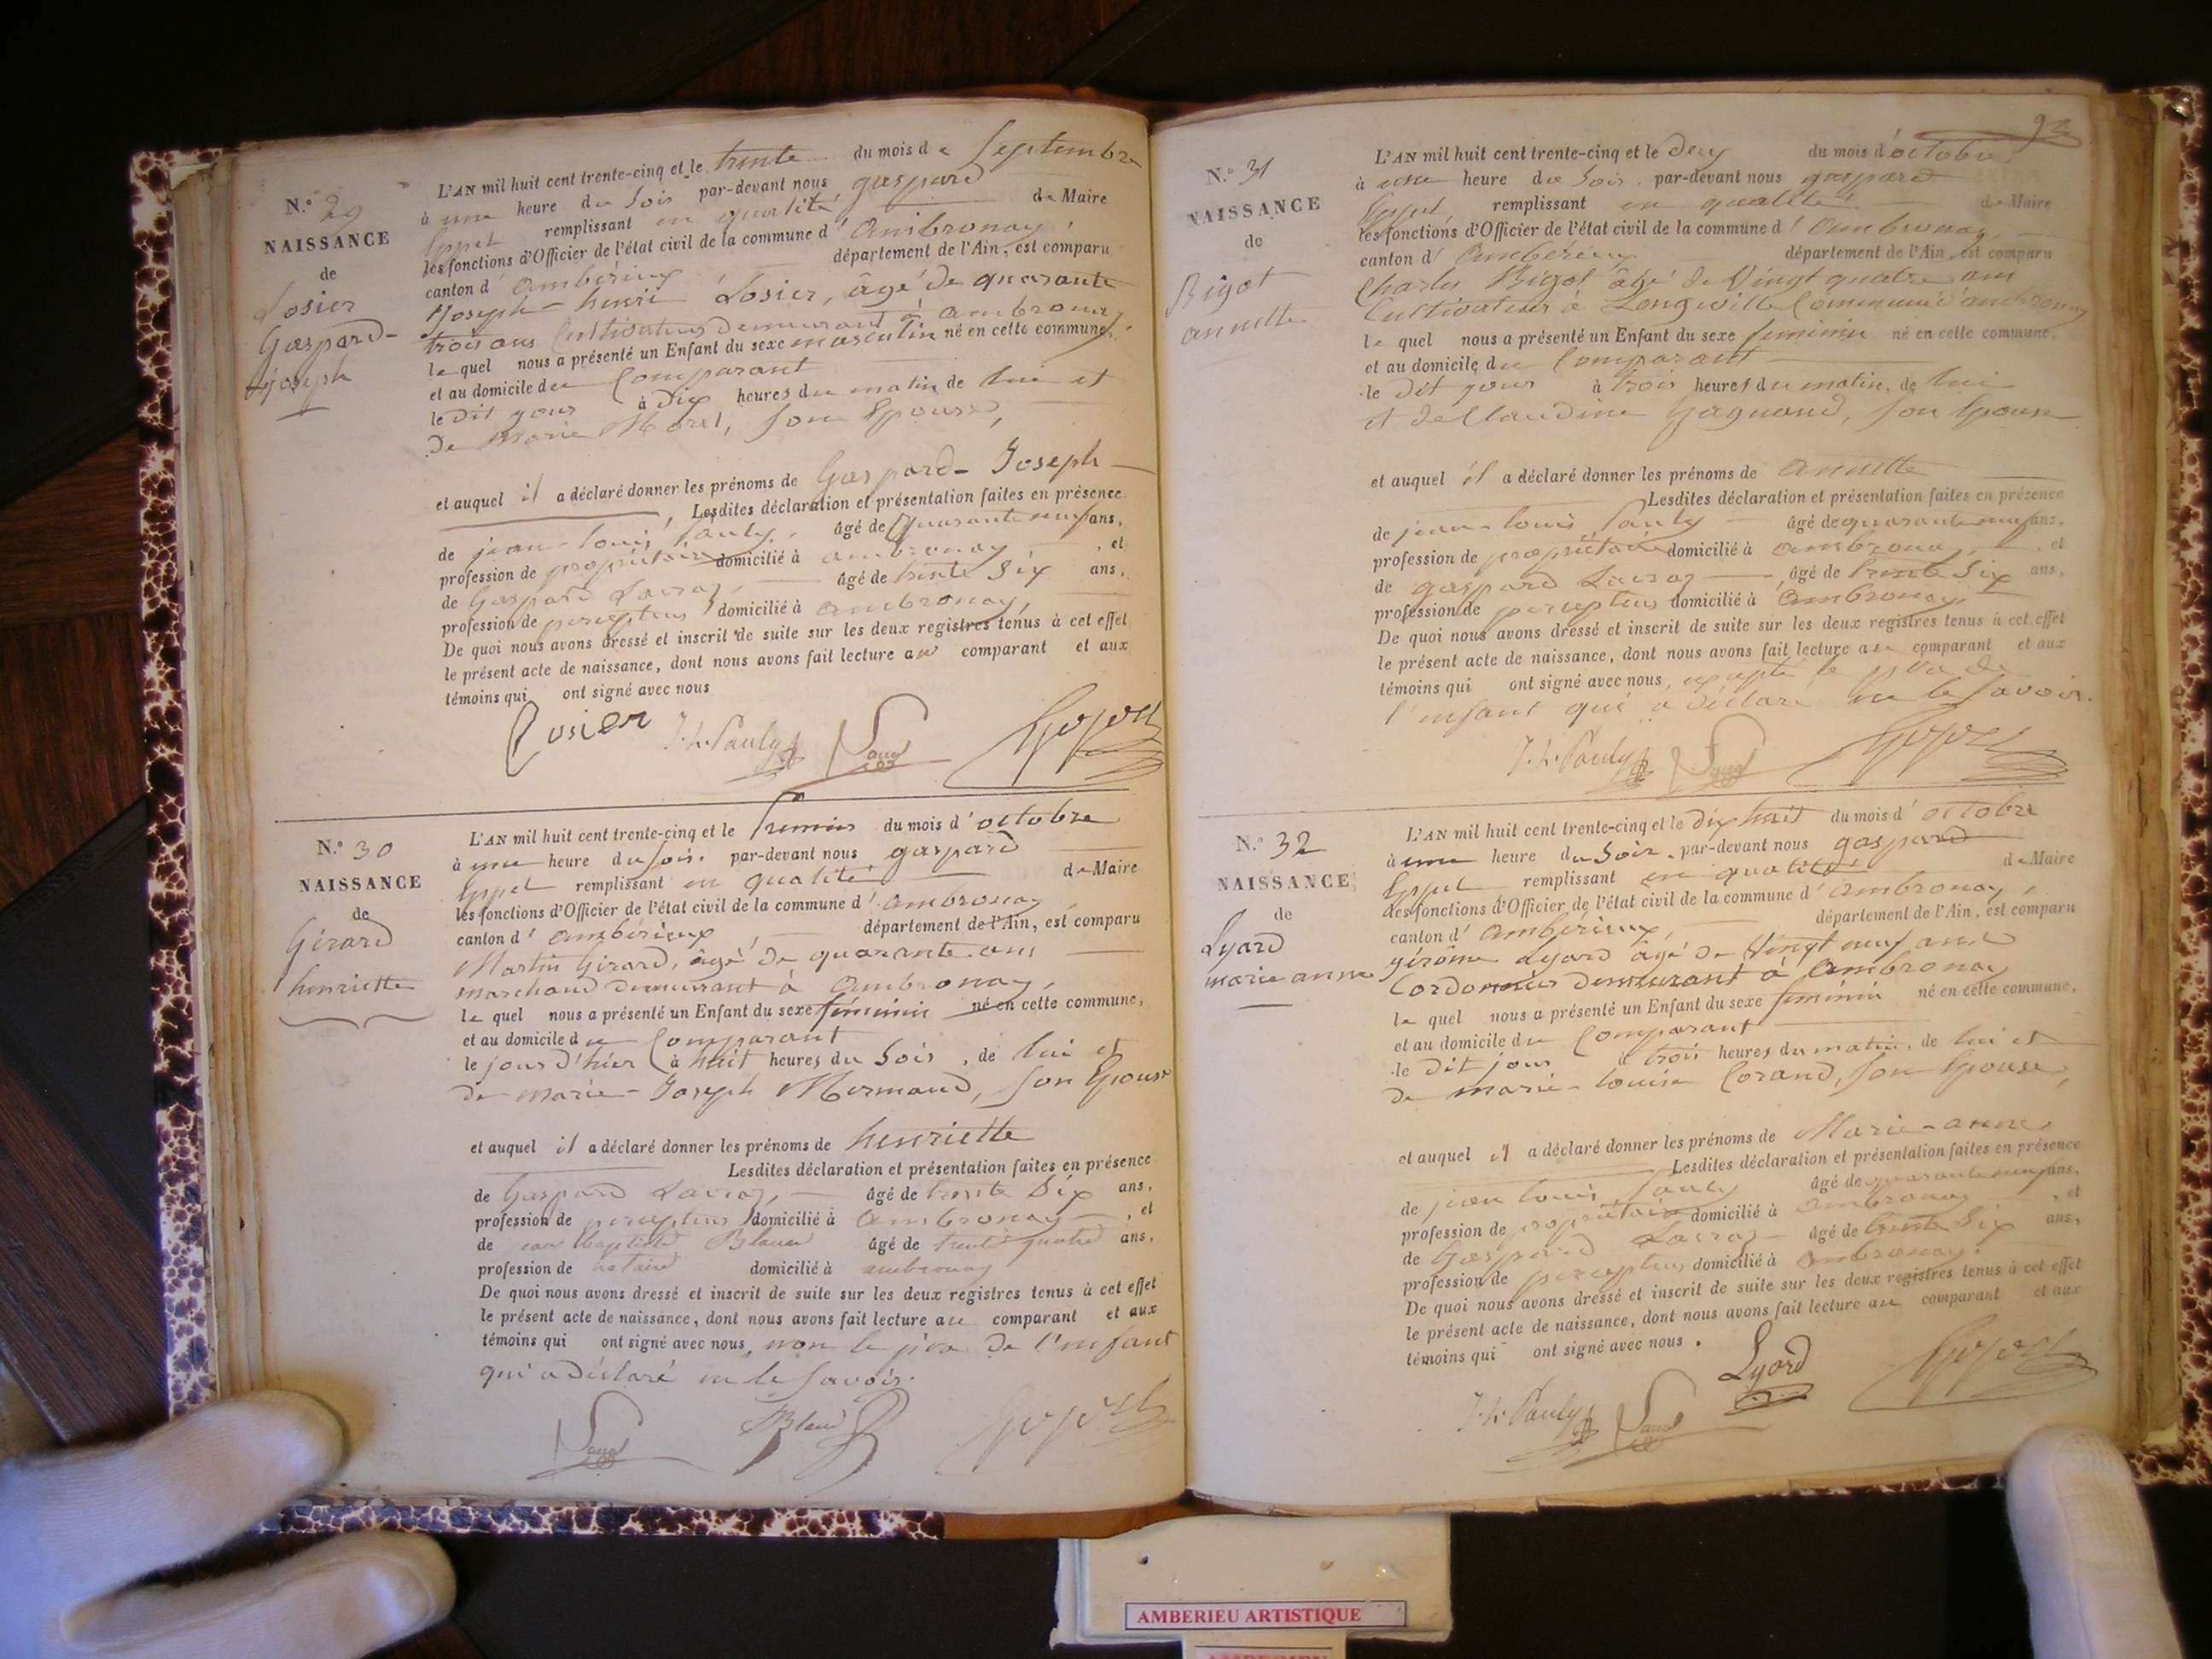 N.° 29
NAISSANCE
de
Losier
Gaspard-
joseph
L'AN mil huit cent trente-cinq et le trente du mois de Septembre
à une heure du Soir par-devant nous gaspard
remplissant en qualité de Maire
les fonctions d'Officier de l'état civil de la commune d'ambronay,
canton d'ambérieux département de l'Ain, est comparu
Joseph-henri Losier, âgé de quarante
trois ans Cultivateur demeurant à ambronay
lequel nous a présenté un Enfant du sexe masculin né en cette commune,
et au domicile du Comparant
le dit jour à dix heures du matin de lui et
de marie Morel, son Epouse,
et auquel il a déclaré donner les prénoms de Gaspard-Joseph
Lesdites déclaration et présentation faites en présence
de jean-louis Pauly, âgé de quarante neuf ans,
profession de propriétaire domicilié à ambronay, et
de Gaspard âgé de trente Six ans,
profession de percepteur domicilié à ambronay,
De quoi nous avons dressé et inscrit de suite sur les deux registres tenus à cet effet
le présent acte de naissance, dont nous avons fait lecture au comparant et aux
témoins qui ont signé avec nous
Losier J. L. Pauly
N.° 30
NAISSANCE
de
Girard
henriette
L'AN mil huit cent trente-cinq et le Premier du mois d'octobre
à une heure du soir. par-devant nous gaspard
remplissant en qualité de Maire
les fonctions d'Officier de l'état civil de la commune d'ambronay
canton d'ambérieux, département de l'Ain, est comparu
Martin Girard, âgé de quarante ans
marchand demeurant à ambronay,
lequel nous a présenté un Enfant du sexe féminin né en cette commune,
et au domicile du Comparant
le jour d'hier à huit heures du Soir, de lui et
de marie-Joseph Mermand, son Epouse
et auquel il a déclaré donner les prénoms de henriette
Lesdites déclaration et présentation faites en présence
de Gaspard âgé de trente Six ans,
profession de percepteur domicilié à ambronay, et
de jean Baptiste Blanc âgé de trente quatre ans,
profession de notaire domicilié à ambronay
De quoi nous avons dressé et inscrit de suite sur les deux registres tenus à cet effet
le présent acte de naissance, dont nous avons fait lecture au comparant et aux
témoins qui ont signé avec nous, non le père de l'enfant
qui a déclaré ne le savoir.
Blanc
N.° 31
NAISSANCE
de
Bigot
annette
L'AN mil huit cent trente-cinq et le deux du mois d'octobre
à une heure du Soir. par-devant nous gaspard
remplissant en qualité de Maire
les fonctions d'Officier de l'état civil de la commune d'ambronay,
canton d'ambérieux département de l'Ain, est comparu
Charles Bigot âgé de Vingt quatre ans
Cultivateur à Longeville Commune d'ambronay
lequel nous a présenté un Enfant du sexe féminin né en cette commune,
et au domicile du Comparant
le dit jour à trois heures du matin, de lui
et de Claudine Gagnand, son Epouse
et auquel il a déclaré donner les prénoms de annette
Lesdites déclaration et présentation faites en présence
de jean-louis Pauly âgé de quarante neuf ans,
profession de propriétaire domicilié à ambronay, et
de gaspard âgé de trente Six ans,
profession de percepteur domicilié à ambronay,
De quoi nous avons dressé et inscrit de suite sur les deux registres tenus à cet effet
le présent acte de naissance, dont nous avons fait lecture au comparant et aux
témoins qui ont signé avec nous, excepté le père de
l'enfant qui a déclaré ne le Savoir.
J. L. Pauly
N.° 32
NAISSANCE
de
Lyard
marie anne
L'AN mil huit cent trente-cinq et le dix huit du mois d'octobre
à une heure du Soir. par-devant nous gaspard
remplissant en qualité de Maire
les fonctions d'Officier de l'état civil de la commune d'ambronay,
canton d'ambérieux, département de l'Ain, est comparu
gérôme Lyard âgé de Vingt neuf ans
Cordonnier demeurant à ambronay
lequel nous a présenté un Enfant du sexe féminin né en cette commune,
et au domicile du Comparant
le dit jour à trois heures du matin, de lui et
de marie-louise Corand, son Epouse,
et auquel il a déclaré donner les prénoms de Marie-anne,
Lesdites déclaration et présentation faites en présence
de jean louis Pauly âgé de quarante neuf ans,
profession de propriétaire domicilié à ambronay, et
de Gaspard âgé de trente Six ans,
profession de percepteur domicilié à ambronay.
De quoi nous avons dressé et inscrit de suite sur les deux registres tenus à cet effet
le présent acte de naissance, dont nous avons fait lecture au comparant et aux
témoins qui ont signé avec nous.
Lyard
J. L. Pauly
AMBERIEU ARTISTIQUE